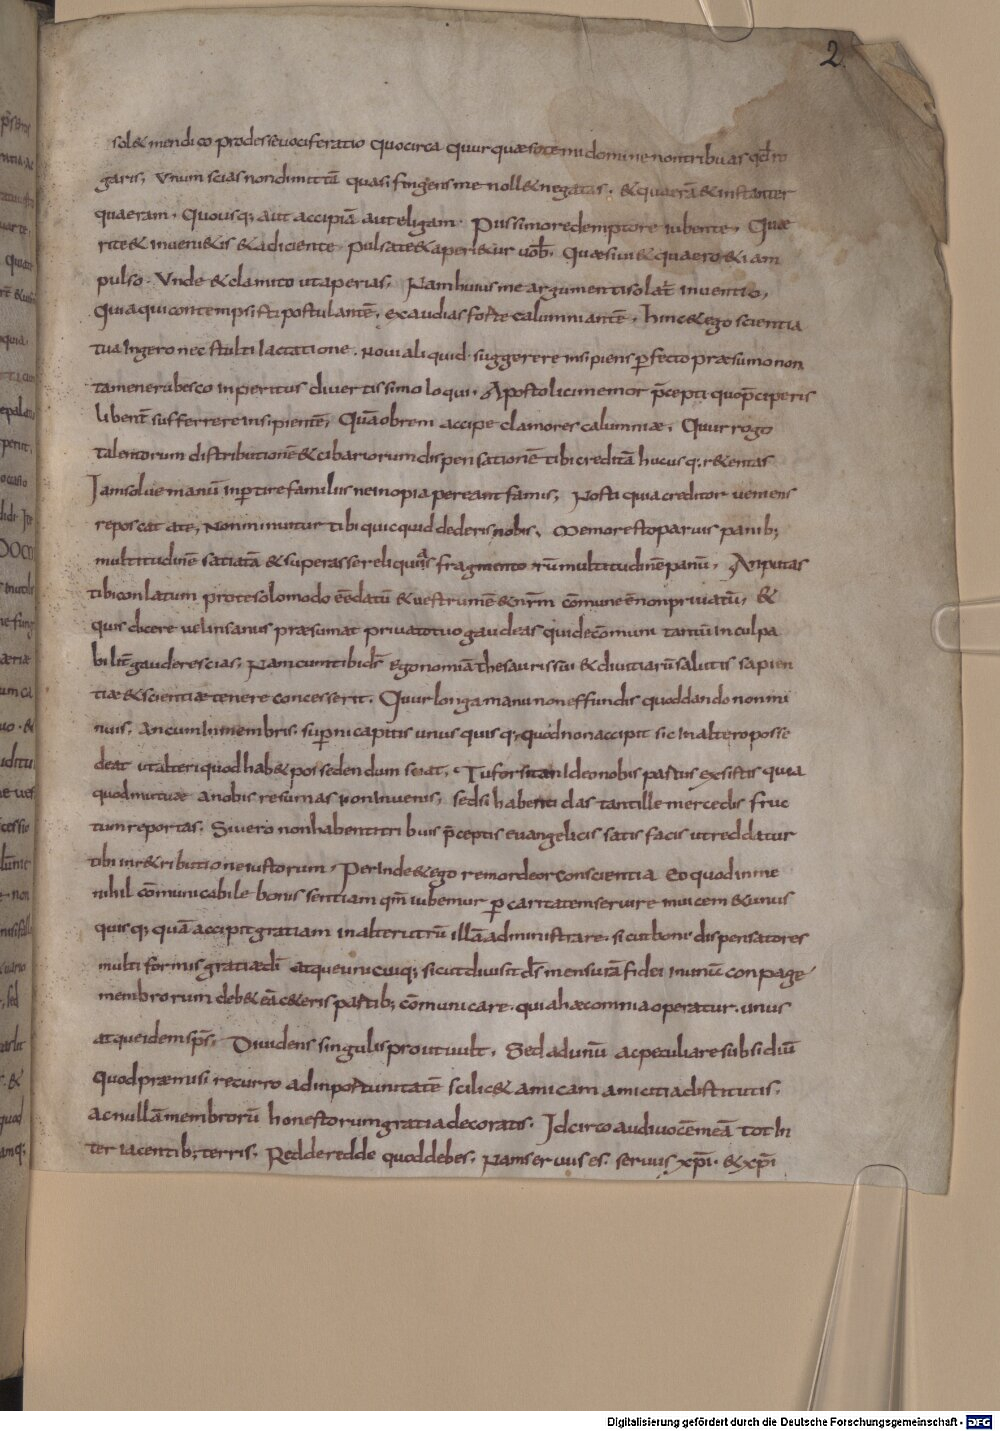 2
sol& mendico prodesse uociferatio quocirca quur quaeso te mi domine non tribuas qđ ro
garis, Vnum scias non dimittā quasi fingens me noll& negatas. & quaerā & instanter
quaeram. Quousq; aut accipiā aut eligam. Piissimo redemptore iubente, Quae
rite & inueni&is & adiciente pulsate & aperi&ur uob̄, Quaesiui & quaero & iam
pulso. Vnde & clamito ut aperias, Nam huius me argumenti solat̄ inuentio,
Quia qui contempsisti postulantē, exaudias forte calumniantē. hinc & ego scientia
tua ingero nec stulti lactatione. Noui aliquid suggerere insipiens p̱fecto praesumo non
tamen erubesco inperitus divertissimo loqui. Apostolici memor p̄cepti quo p̄ciperis
libent̄ sufferrere insipientē, Quā obrem accipe clamores calumniae, Quur rogo
talentorum distributionē & cibariorum dispensationē tibi creditā hucusq; r&entas
Jam solue manū inp̱tire familiis ne inopia pereant famis, Nosti quia creditor ueniens
reposcat a te, Non minuitur tibi quicquid dederis nobis, Memor esto paruis panib;
multitudinē satiatā & superasse reliquias fragmentorū multitudinē panū, An putas
tibi conlatum pro te solomodo eē datū & uestrum ē & nr̄m cōmune ē non priuatū, &
quis dicere uel insanus praesumat priuato tuo gaudeas qui de cōmuni tantū inculpa
bilit̄ gaudere scias, Nam cum tibi ds̄ egonomiā thesauris sui & diuitiarū salutis sapien
tiae & scientiae tenere concesserit. Quur longa manu non effundis quod dando non mi
nuis. An cum in membris sup̱ni capitis unus quisq; quod non accipit sic in altero posse
deat ut alteri quod hab& possedendum sciat. Tu forsitan ideo nobis pastus exsistis quia
quod mutuae a nobis resumas non inuenis, sed si habenti das tantille mercedis fruc
tum reportas. Si uero non habenti tribuis p̄ceptis euangelicis satis facis ut reddatur
tibi in r&ributione iustorum, Perinde & ego remordeor conscientia eo quod in me
nihil cōmunicabile bonis sentiam qm̄ iubemur p̱ caritatem seruire inuicem & unus
quisq; quā accipit gratiam in alterutrū illā administrare. sicut boni dispensatores
multiformis gratiae dī atque unicuiq; sicut diuisit ds̄ mensurā fidei in unū conpage
membrorum deb& eā c&eris partib; cōmunicare. quia haec omnia operatur unus
atque idem sps̄, Diuidens singulis prout uult, Sed ad unū ac peculiare subsidiū
quod praemisi recurro ad inportunitatē scilic& amicam amicitia distitutis,
ac nullā membrorū honestorum gratia decoratis. Jdcirco audi uocē meā tot in
teriacentib; terris, Redde redde quod debes. Nam seruus es. seruus xp̄i. & xp̄i
Digitalisierung gefördert durch die Deutsche Forschungsgemeinschaft - DFG